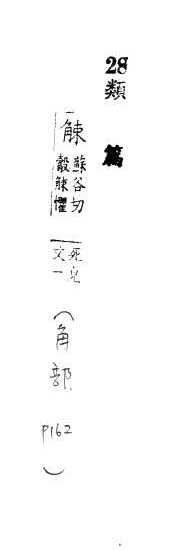 28
類篇
觫
蘇谷切
觳觫懼
死皃
文一
(角部 P162)